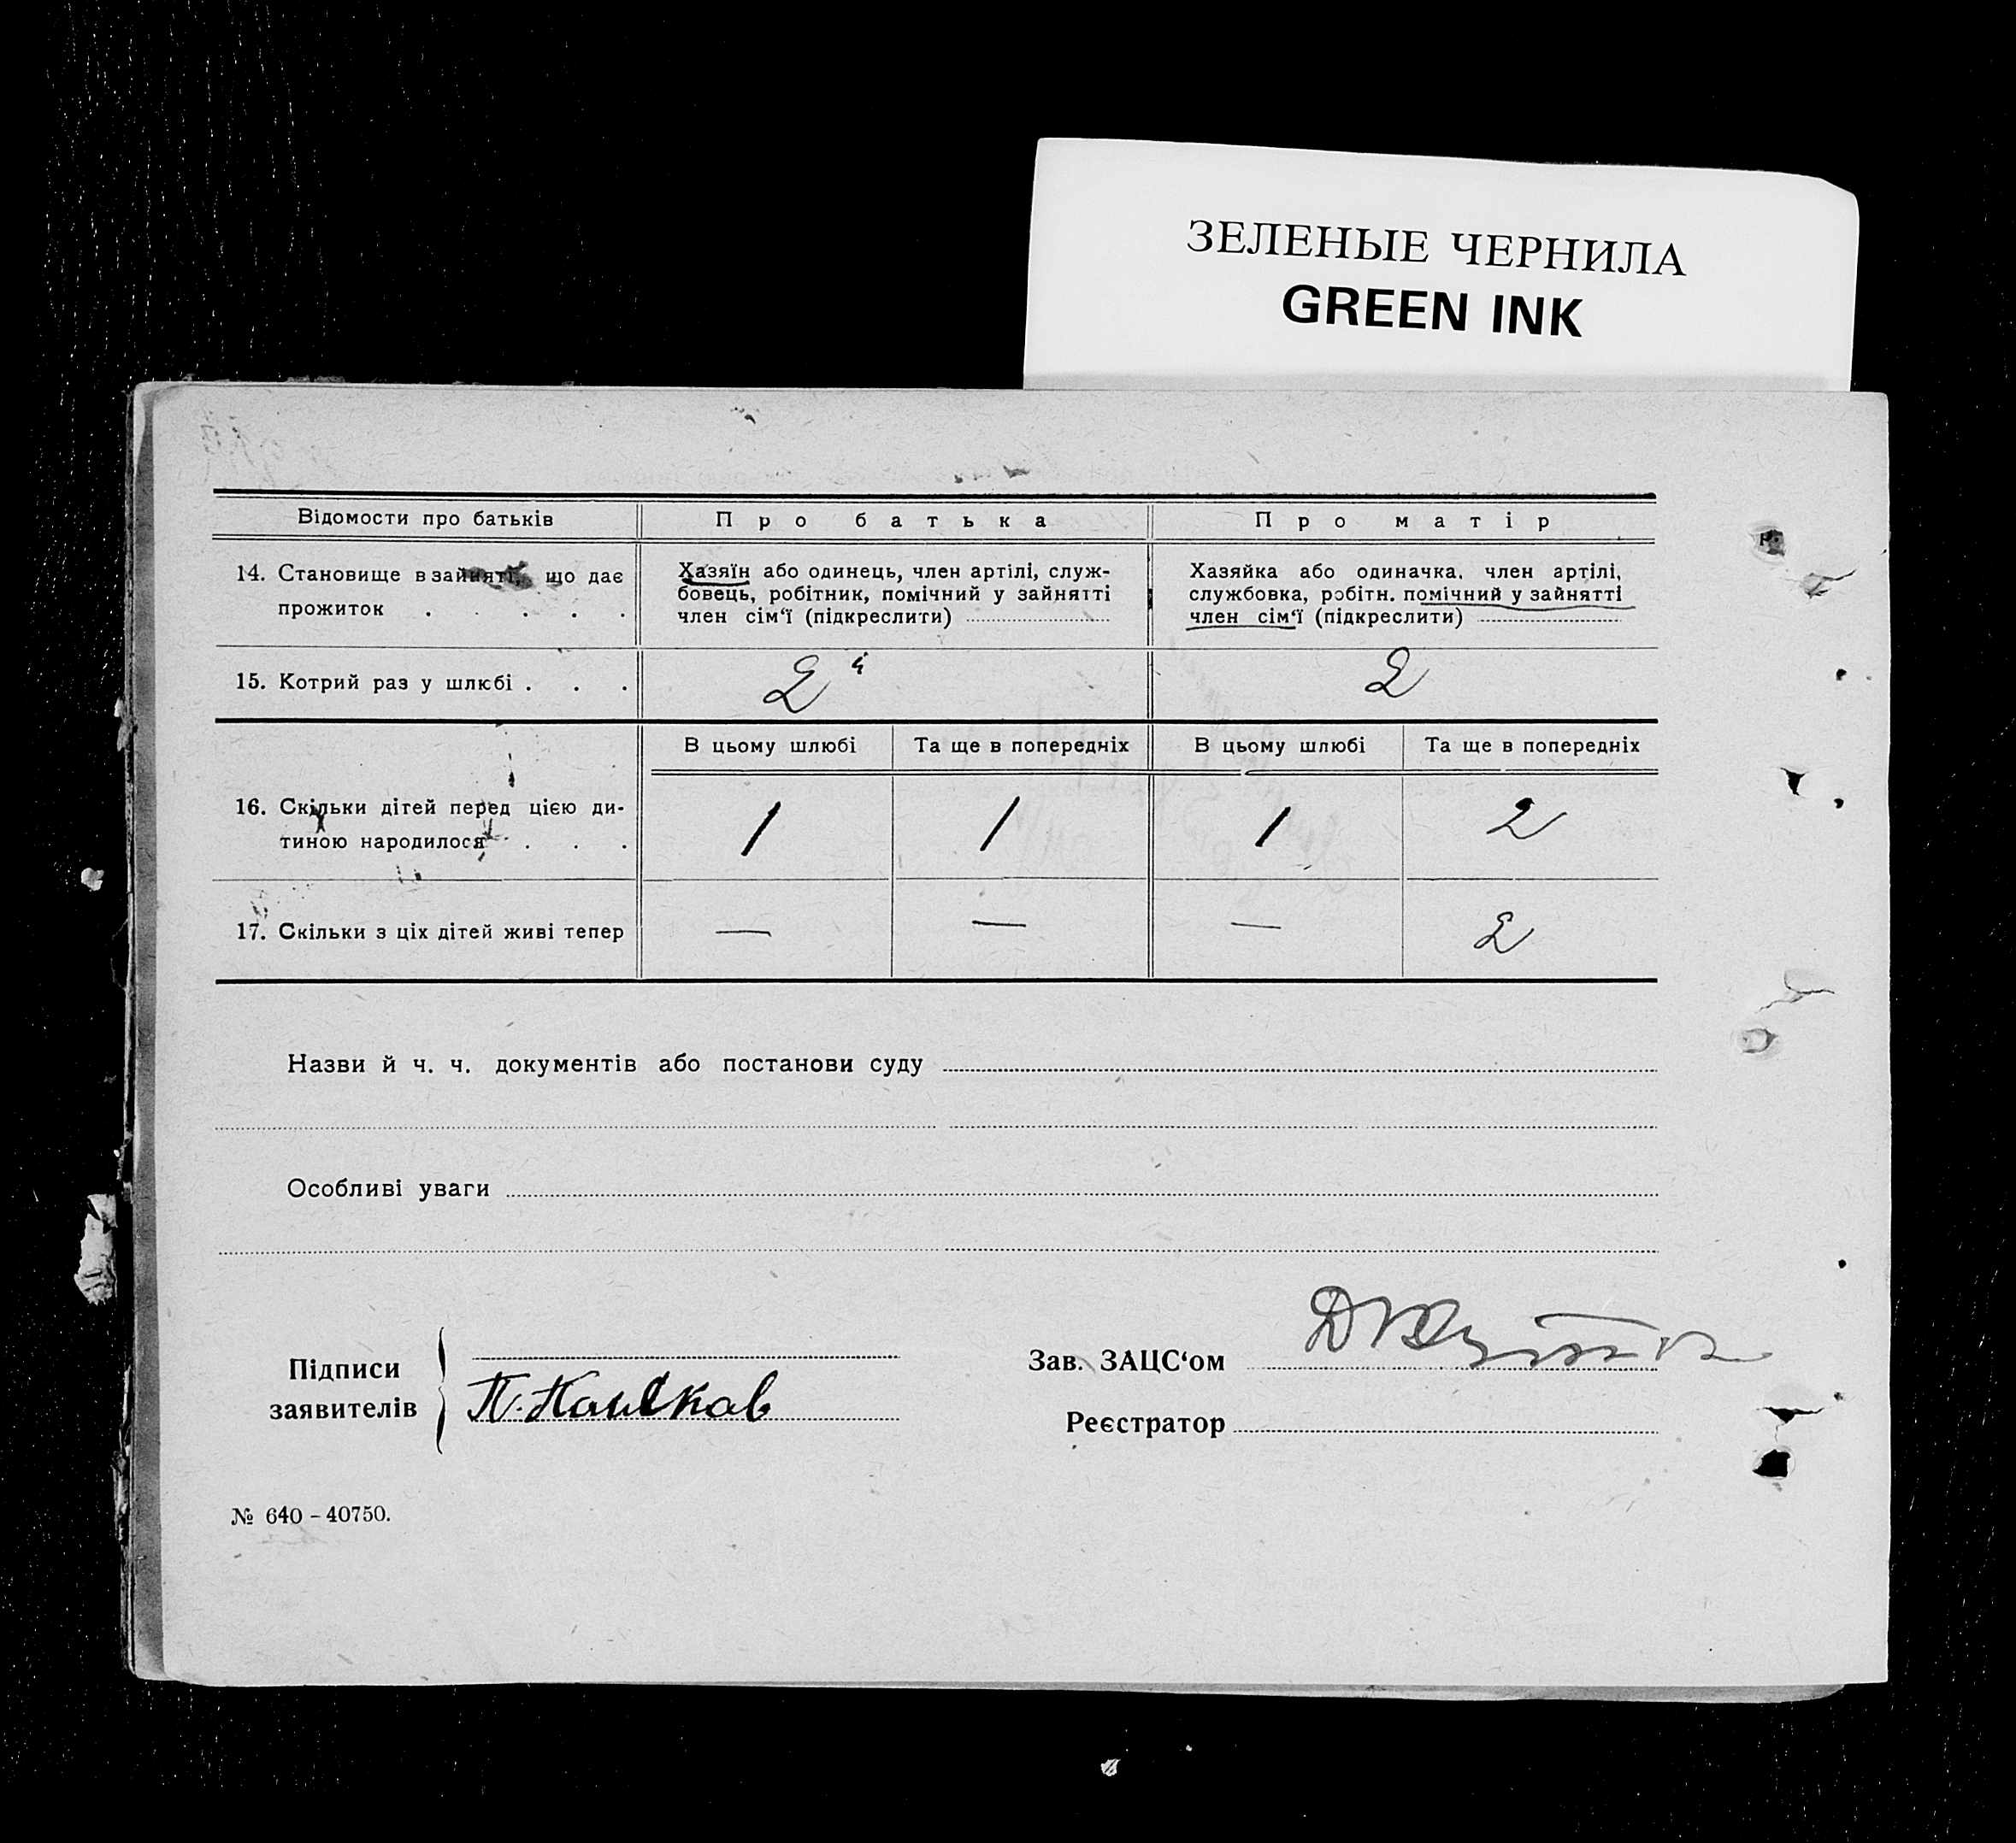 ЗЕЛЕНЫЕ ЧЕРНИЛА
GREEN INK
Відомости про батьків
Про батька
Про матір
14. Становище в зайнятті, що дає
прожиток . . . . .
Хазяїн або одинець, член артілі, служ-
бовець, робітник, помічний у зайнятті
член сім‘ї (підкреслити)
Хазяйка або одиначка, член артілі,
службовка, робітн. помічний у зайнятті
член сім‘ї (підкреслити)
15. Котрий раз у шлюбі . . .
2й
2
В цьому шлюбі
Та ще в попередніх
В цьому шлюбі
Та ще в попередніх
16. Скільки дітей перед цією ди-
тиною народилося . . .
1
1
1
2
17. Скільки з ціх дітей живі тепер
—
—
—
2
Назви й ч. ч. документів або постанови суду
Особливі уваги
Підписи
заявителів
П.
Зав. ЗАЦС‘ом
Реєстратор
№ 640 – 40750.